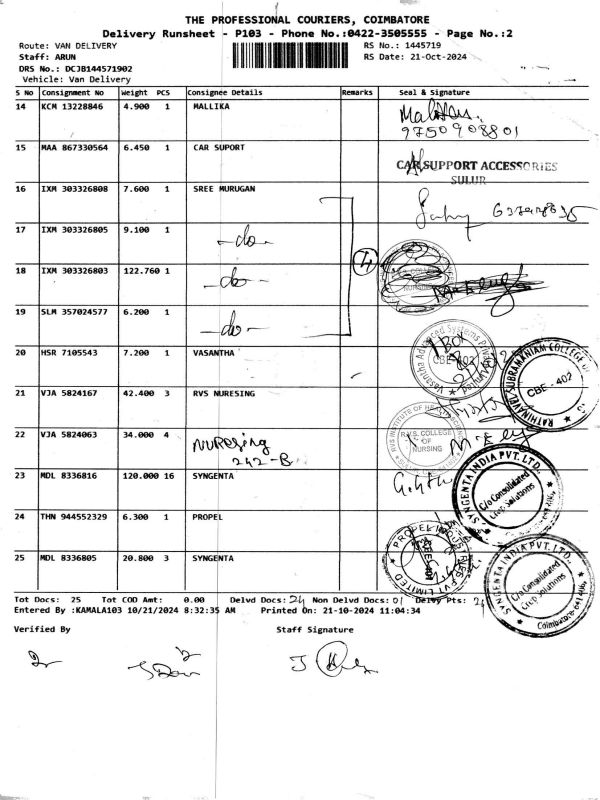 THE PROFESSIONAL COURIERS, COIMBATORE
Delivery Runsheet - P103 - Phone No.:0422-3505555 - Page No.:2
Route: VAN DELIVERY RS No.: 1445719
Staff: ARUN RS Date: 21-Oct-2024
DRS No.: DCJB144571902
Vehicle: Van Delivery
S No Consignment No Weight PCS Consignee Details Remarks Seal & Signature
14 KCM 13228846 4.900 1 MALLIKA
9750908801
15 MAA 867330564 6.450 1 CAR SUPORT
CAR SUPPORT ACCESSORIES
SULUR
16 IXM 303326808 7.600 1 SREE MURUGAN
17 IXM 303326805 9.100 1 -do-
18 IXM 303326803 122.760 1 -do- 4
19 SLM 357024577 6.200 1 -do-
20 HSR 7105543 7.200 1 VASANTHA
Vasantha Advanced Systems
CBE-402
RATHINAVEL SUBRAMANIAM COLLEGE OF
CBE - 402
21 VJA 5824167 42.400 3 RVS NURESING
22 VJA 5824063 34.000 4 NURESING
242-B
RVS INSTITUTE OF HEALTH
R.V.S. COLLEGE
OF
NURSING
23 MDL 8336816 120.000 16 SYNGENTA
SYNGENTA INDIA PVT. LTD.
C/o Consolidated
Crop Solutions
24 THN 944552329 6.300 1 PROPEL
PROPEL INDUSTRIES PVT LIMITED
25 MDL 8336805 20.800 3 SYNGENTA
SYNGENTA INDIA PVT. LTD.
C/o Consolidated
Crop Solutions
Coimbatore
Tot Docs: 25 Tot COD Amt: 0.00 Delvd Docs: 24 Non Delvd Docs: 01 Delvy Pts:
Entered By :KAMALA103 10/21/2024 8:32:35 AM Printed On: 21-10-2024 11:04:34
Verified By Staff Signature